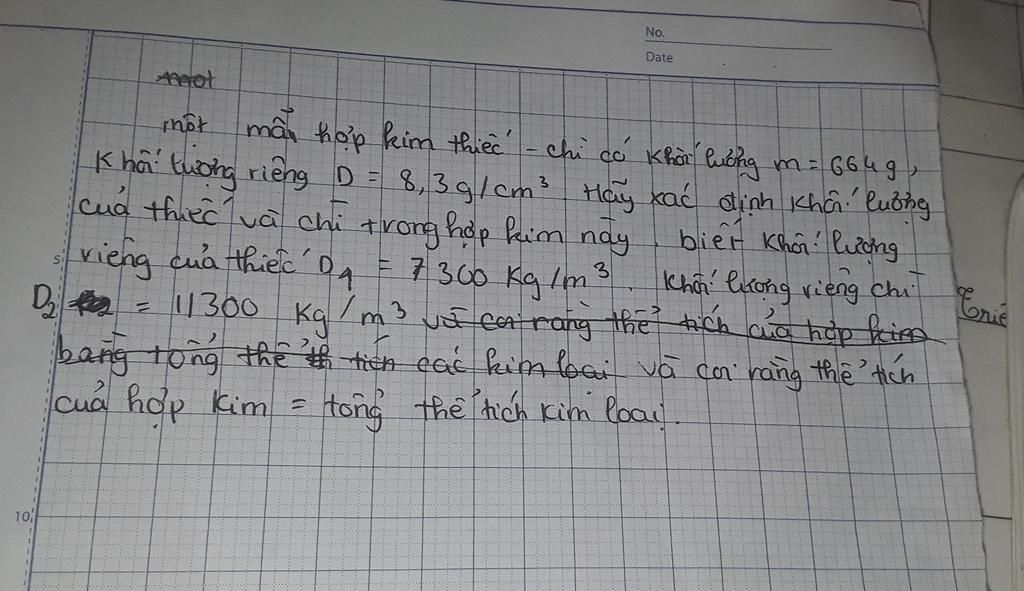 No.
Date
một
một mẩu hợp kim thiếc - chì có khối lượng m = 664g,
Khối lượng riêng D = 8,3g/cm³. Hãy xác định khối lượng
của thiếc và chì trong hợp kim này. biết khối lượng
5
riêng của thiếc D₁ = 7300 Kg/m³. khối lượng riêng chì
D₂ = 11300 Kg/m³ và coi rằng thể tích của hợp kim
bằng tổng thể tích các kim loại và coi rằng thể tích
của hợp kim = tổng thể tích kim loại.
10